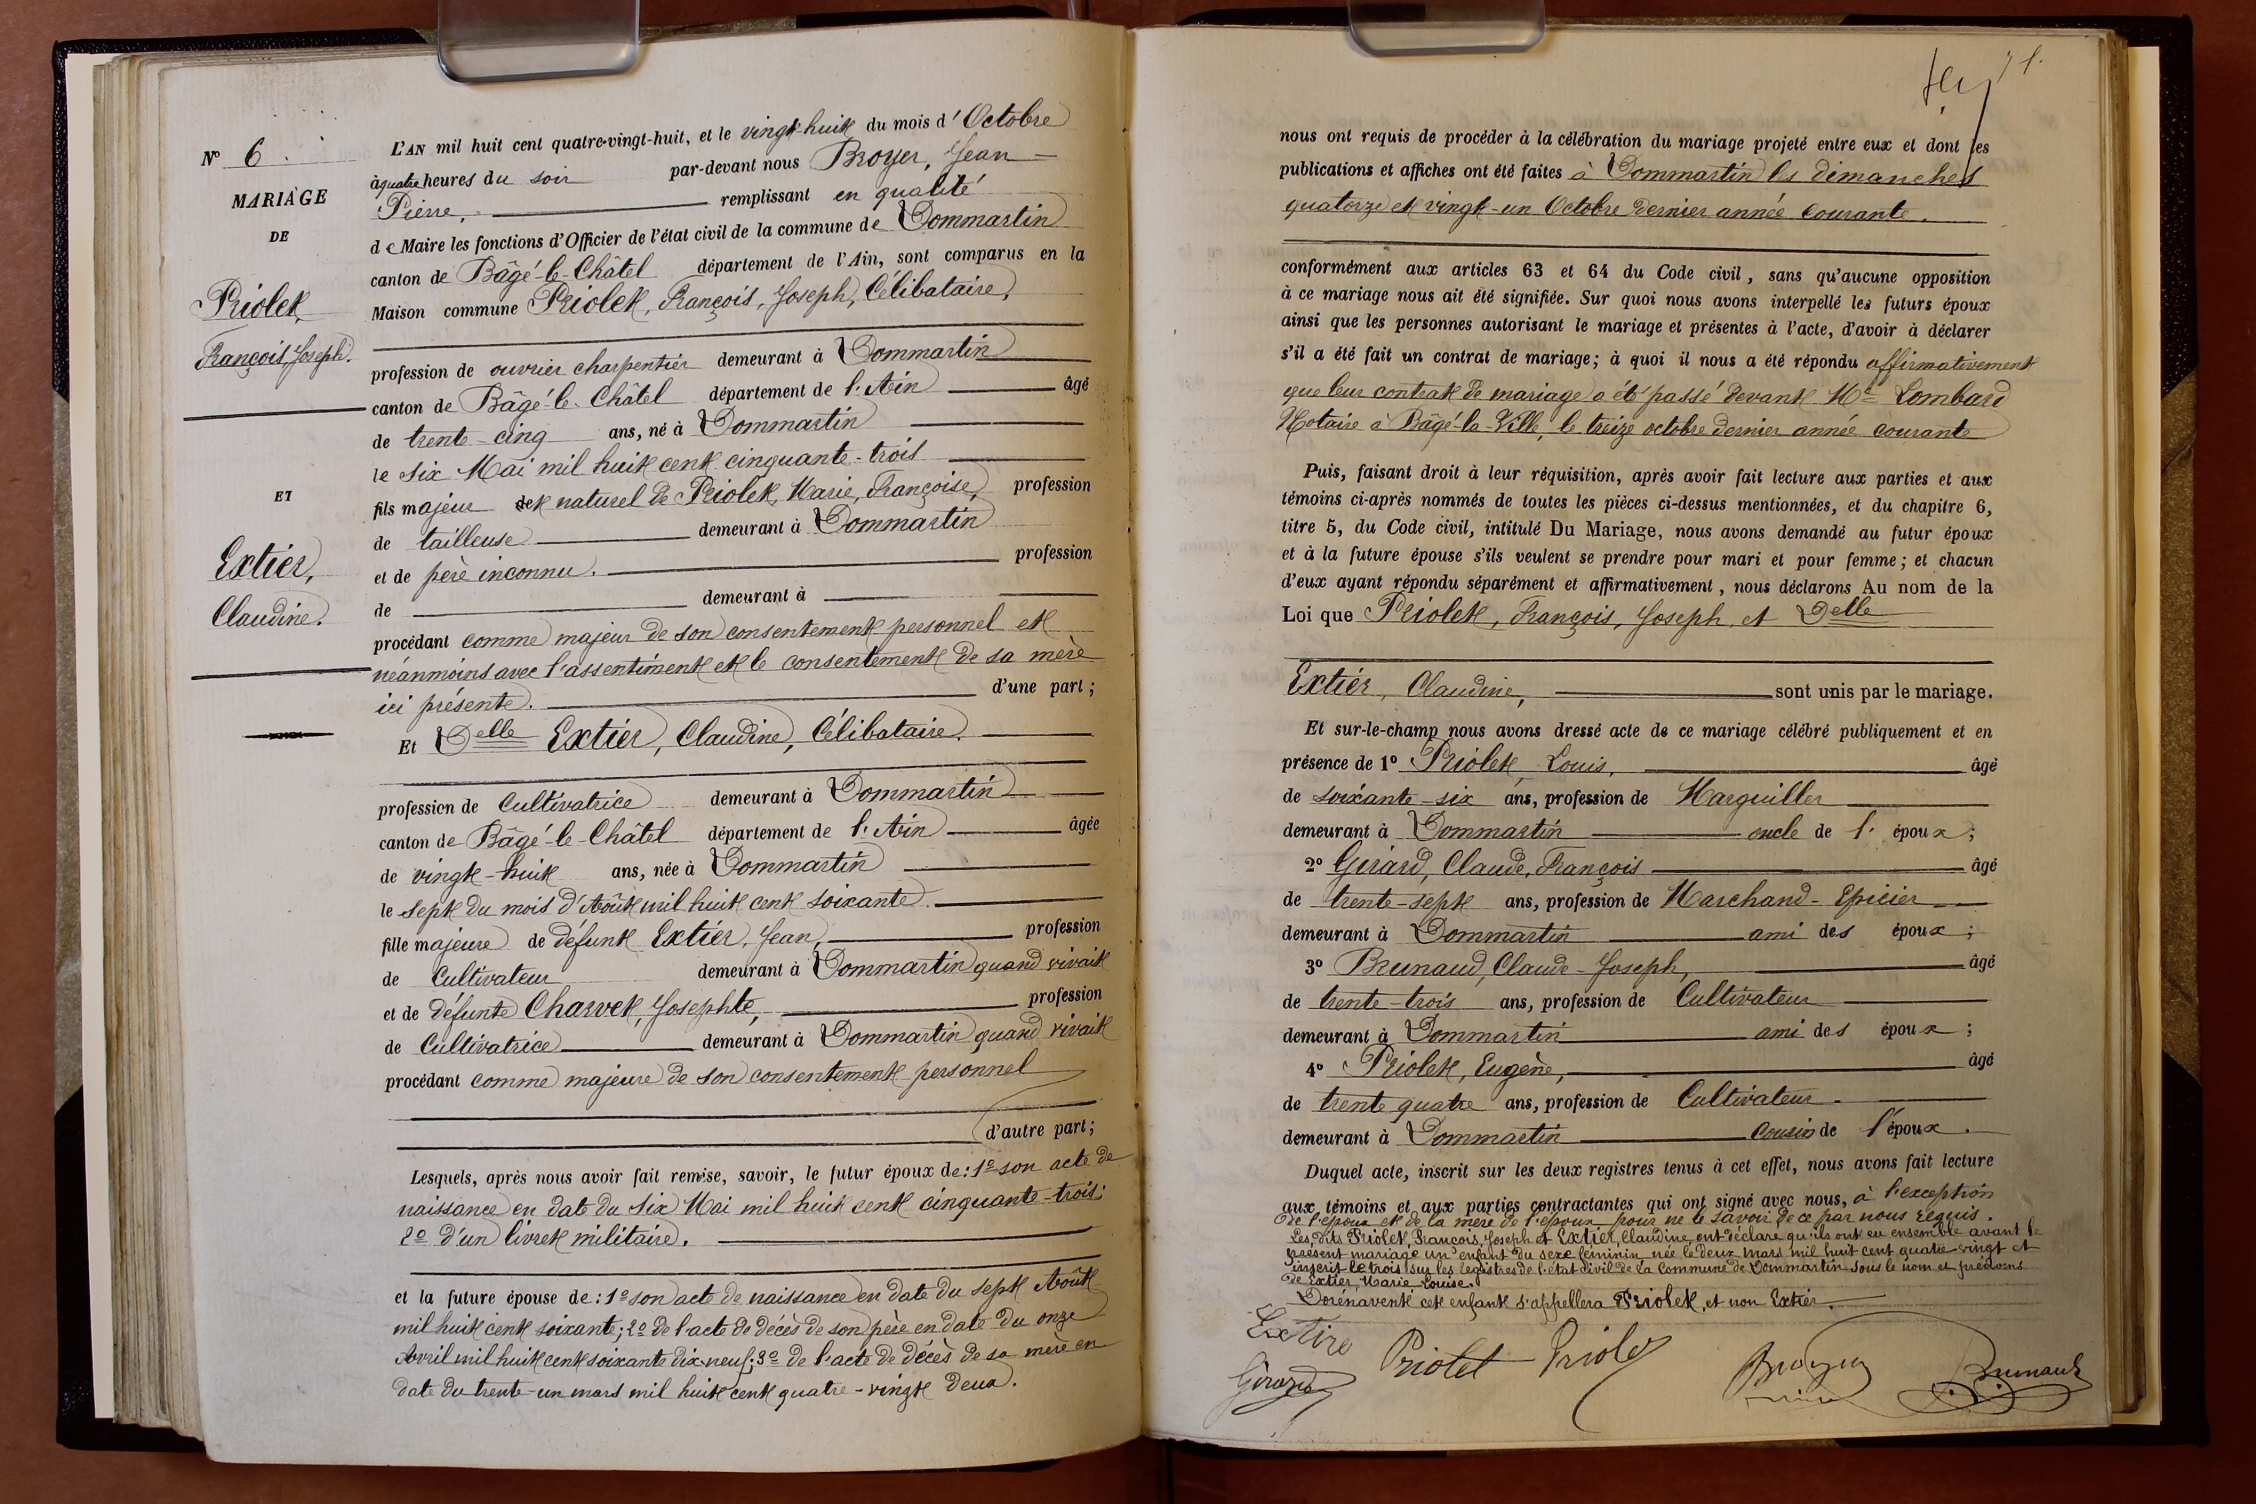 N° 6.
MARIAGE
DE
Priolet,
François, Joseph.
ET
Extier,
Claudine.
L'AN mil huit cent quatre-vingt-huit, et le vingt-huit du mois d'Octobre
à quatre heures du soir par-devant nous Broyer, Jean
Pierre, remplissant en qualité
de Maire les fonctions d'Officier de l'état civil de la commune de Dommartin
canton de Bâgé-le-Châtel département de l'Ain, sont comparus en la
Maison commune Priolet, François, Joseph, Célibataire,
profession de ouvrier charpentier demeurant à Dommartin
canton de Bâgé-le-Châtel département de l'Ain âgé
de trente-cinq ans, né à Dommartin
le six Mai mil huit cent cinquante-trois
fils majeur et naturel de Priolet, Marie, Françoise, profession
de tailleuse demeurant à Dommartin
et de père inconnu. profession
de demeurant à
procédant comme majeur de son consentement personnel et
néanmoins avec l'assentiment et le consentement de sa mère
ici présente. d'une part;
Et Delle Extier, Claudine, Célibataire.
profession de Cultivatrice demeurant à Dommartin
canton de Bâgé-le-Châtel département de l'Ain âgée
de vingt-huit ans, née à Dommartin
le sept du mois d'Août mil huit cent soixante.
fille majeure de défunt Extier, Jean, profession
de Cultivateur demeurant à Dommartin quand vivait
et de défunte Charvet, Josephte, profession
de Cultivatrice demeurant à Dommartin quand vivait
procédant comme majeure de son consentement personnel
d'autre part;
Lesquels, après nous avoir fait remise, savoir, le futur époux de: 1° son acte de
naissance en date du six Mai mil huit cent cinquante-trois;
2° d'un livret militaire.
et la future épouse de: 1° son acte de naissance en date du sept Août
mil huit cent soixante; 2° de l'acte de décès de son père en date du onze
Avril mil huit cent soixante dix-neuf; 3° de l'acte de décès de sa mère en
date du trente-un mars mil huit cent quatre-vingt deux.
71.
nous ont requis de procéder à la célébration du mariage projeté entre eux et dont les
publications et affiches ont été faites à Dommartin les dimanches
quatorze et vingt-un Octobre dernier année courante.
conformément aux articles 63 et 64 du Code civil, sans qu'aucune opposition
à ce mariage nous ait été signifiée. Sur quoi nous avons interpellé les futurs époux
ainsi que les personnes autorisant le mariage et présentes à l'acte, d'avoir à déclarer
s'il a été fait un contrat de mariage; à quoi il nous a été répondu affirmativement
que leur contrat de mariage a été passé devant Me Lombard
Notaire à Bâgé-la-Ville, le treize octobre dernier année courante
Puis, faisant droit à leur réquisition, après avoir fait lecture aux parties et aux
témoins ci-après nommés de toutes les pièces ci-dessus mentionnées, et du chapitre 6,
titre 5, du Code civil, intitulé Du Mariage, nous avons demandé au futur époux
et à la future épouse s'ils veulent se prendre pour mari et pour femme; et chacun
d'eux ayant répondu séparément et affirmativement, nous déclarons Au nom de la
Loi que Priolet, François, Joseph, et Delle
Extier, Claudine, sont unis par le mariage.
Et sur-le-champ nous avons dressé acte de ce mariage célébré publiquement et en
présence de 1° Priolet, Louis, âgé
de soixante-six ans, profession de Marguiller
demeurant à Dommartin oncle de l'époux;
2° Girard, Claude, François âgé
de trente-sept ans, profession de Marchand-Epicier
demeurant à Dommartin ami des époux;
3° Brunaud, Claude-Joseph, âgé
de trente-trois ans, profession de Cultivateur
demeurant à Dommartin ami des époux;
4° Priolet, Eugène, âgé
de trente quatre ans, profession de Cultivateur
demeurant à Dommartin cousin de l'époux.
Duquel acte, inscrit sur les deux registres tenus à cet effet, nous avons fait lecture
aux témoins et aux parties contractantes qui ont signé avec nous, à l'exception
de l'époux et de la mère de l'époux pour ne le savoir de ce par nous requis.
Les dits Priolet, François, Joseph et Extier, Claudine, ont déclaré qu'ils ont eu ensemble avant le
présent mariage un enfant du sexe féminin née le deux mars mil huit cent quatre-vingt et
inscrit le trois sur les registres de l'état civil de la Commune de Dommartin sous le nom et prénoms
de Extier, Marie-Louise.
Dorénavent cet enfant s'appellera Priolet, et non Extier.
Extire
Girard Priolet Priolet Broyer Brunaud